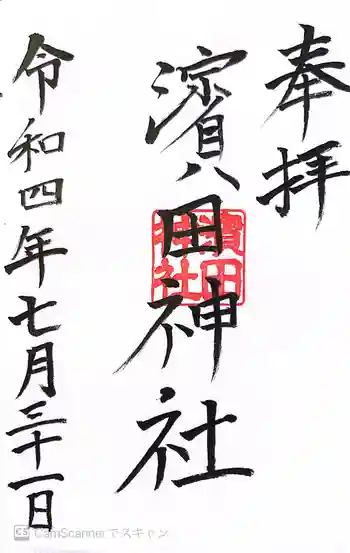 奉拝
濱田神社
濱田神社
令和四年七月三十一日
CS CamScannerでスキャン